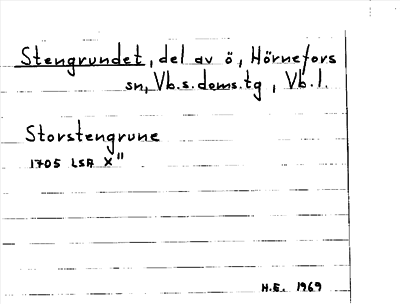 Stengrundet, del av ö, Hörnefors
sn, Vb.s.doms.tg, Vb.l.
Storstengrune
1705 LSA X"
H.E. 1969